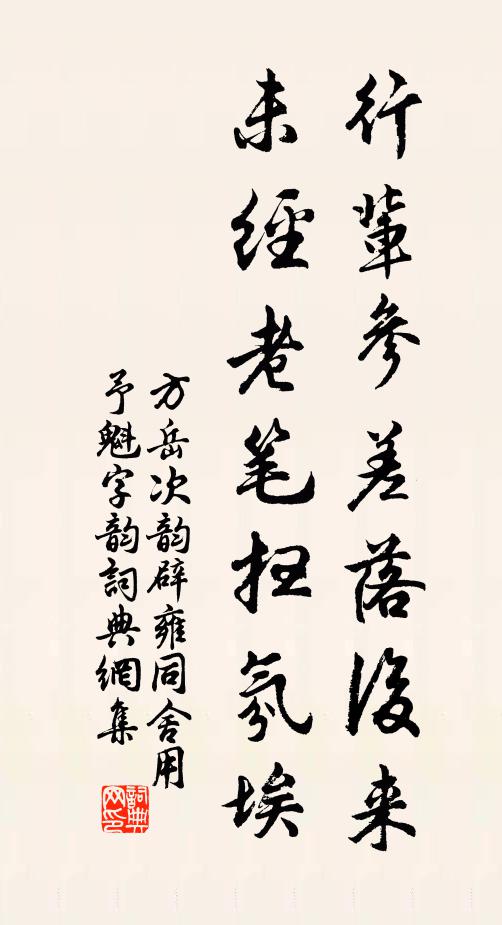 行輩參差落後来
未經老笔扫氛埃
方岳次韵辟雍同舍用
予魁字韵詞典網集
詞典网印